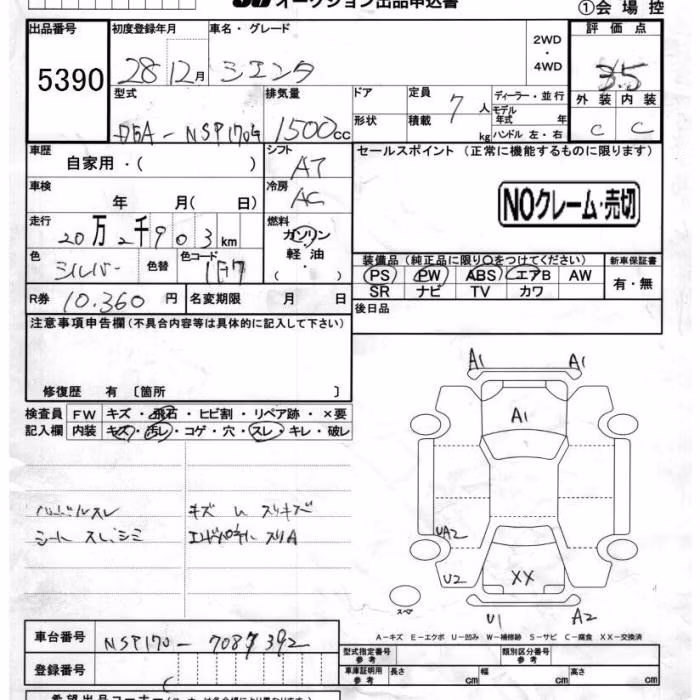 オークション出品申込書
①会場控
出品番号 初度登録年月 車名・グレード 評価点
5390 28 12月 シエンタ 2WD・4WD 3.5
型式 排気量 ドア 定員 7人 ディーラー・並行 外装 内装
DBA-NSP170G 1500cc 形状 積載 kg モデル年式 年 ハンドル 左・右 C C
車歴 シフト セールスポイント (正常に機能するものに限ります)
自家用・( ) AT
車検 冷房
年 月( 日) AC
NOクレーム・売切
走行 燃料
20万2千903km ガソリン・軽油・( )
色 シルバー 色替 色コード 1F7
装備品 (純正品に限り○をつけてください) 新車保証書
PS PW ABS エアB AW 有・無
SR ナビ TV カワ
R券 10,360円 名変期限 月 日 後日品
注意事項申告欄(不具合内容等は具体的に記入して下さい)
修復歴 有 〔箇所 〕
検査員 FW キズ・飛石・ヒビ割・リペア跡・×要
記入欄 内装 キズ・汚レ・コゲ・穴・スレ・キレ・破レ
ハンドルスレ キズ 凹 スリキズ
シート スレ、シミ スリA
A1 A1
A1
UA2
U2 XX
スペア U1 A2
A-キズ E-エクボ U-凹み W-補修跡 S-サビ C-腐食 XX-交換済
車台番号 NSP170-7087392
型式指定番号 参考 類別区分番号 参考
登録番号
車庫証明用 参考 長さ cm 幅 cm 高さ cm
希望出品コーナー